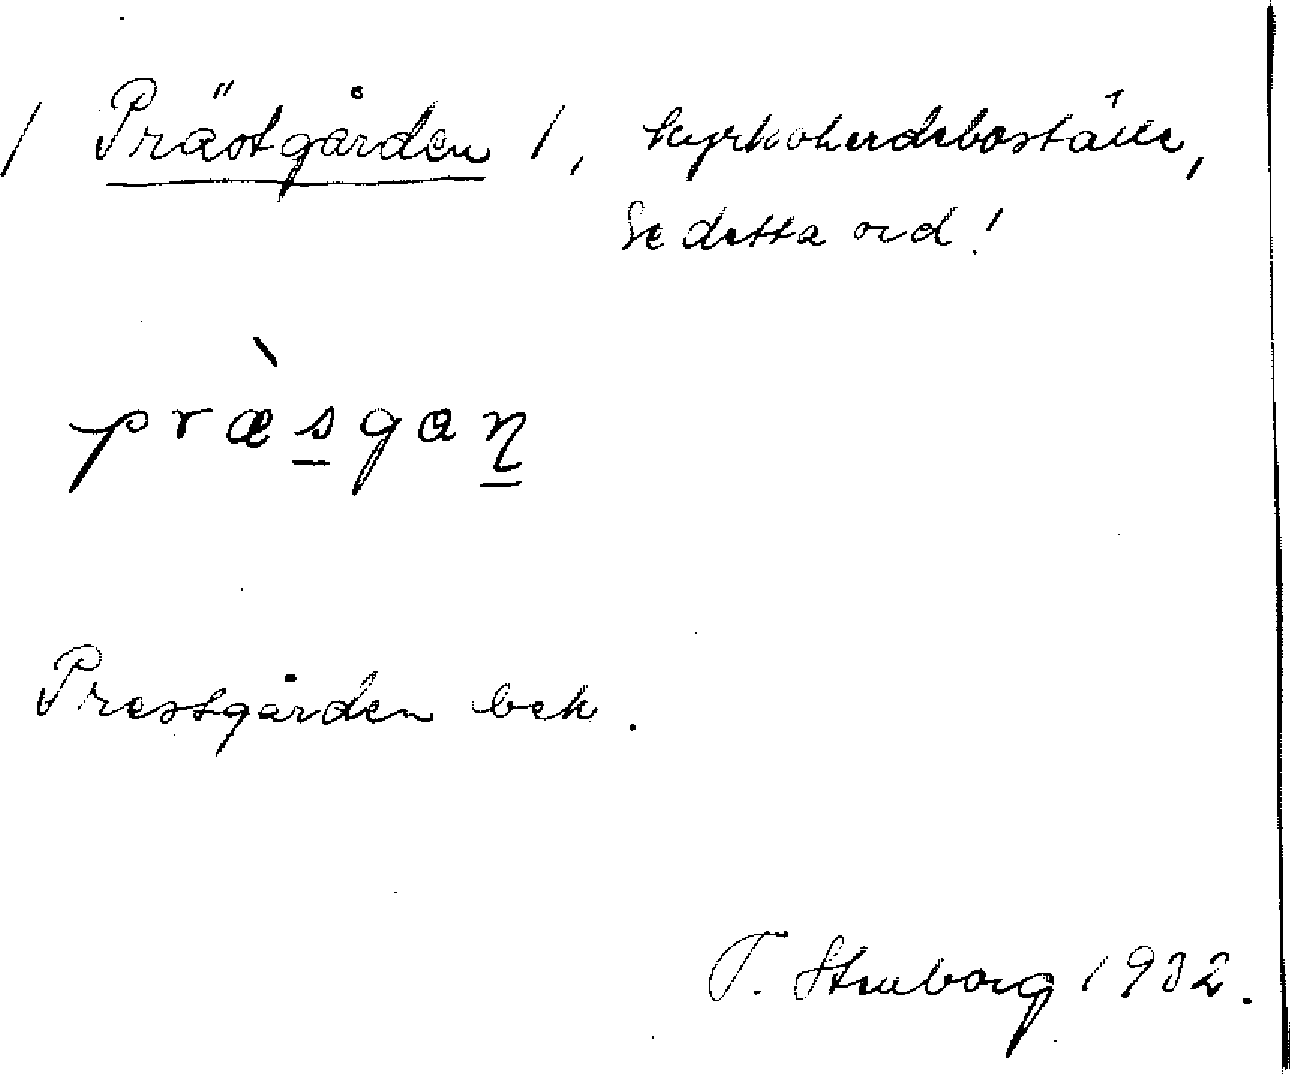 / Prästgården /, kyrkoherdeboställe,
Se detta ord!
præ̀sgaɳ
Prestgården bek.
T. Stenborg 1932.